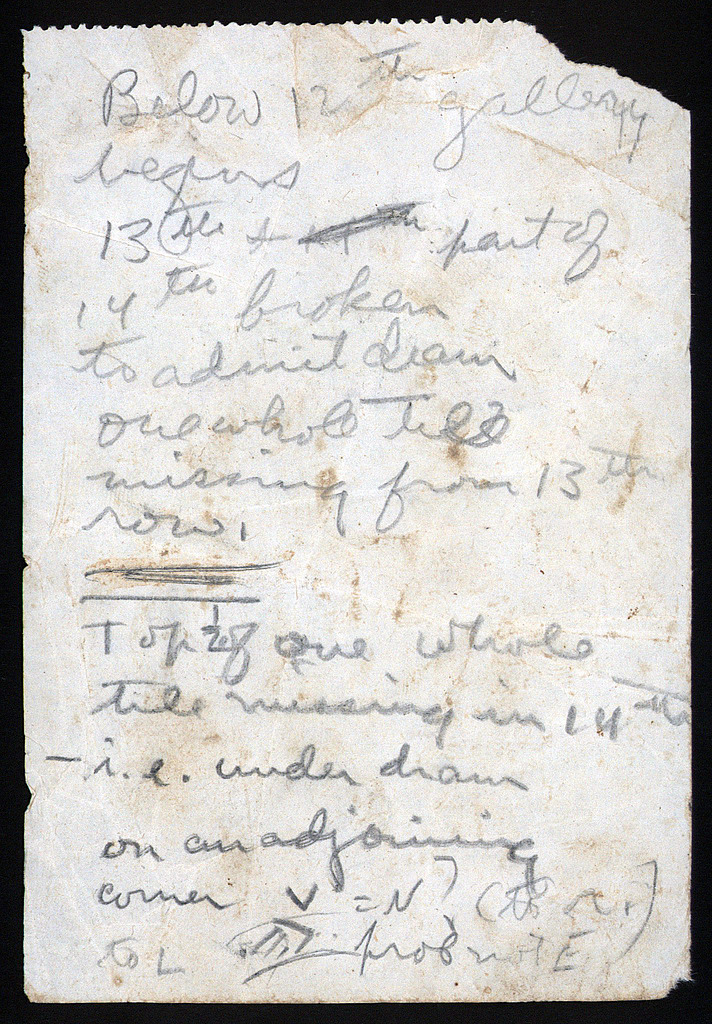 Below 12th gallery
begins
13th + part of
14th broken
to admit drain
one whole tile
missing from 13th
row.
Top ½ of one whole
tile missing in 14th
- i.e. under drain
on an adjoining
corner V = N? (to r.)
to L prob not E